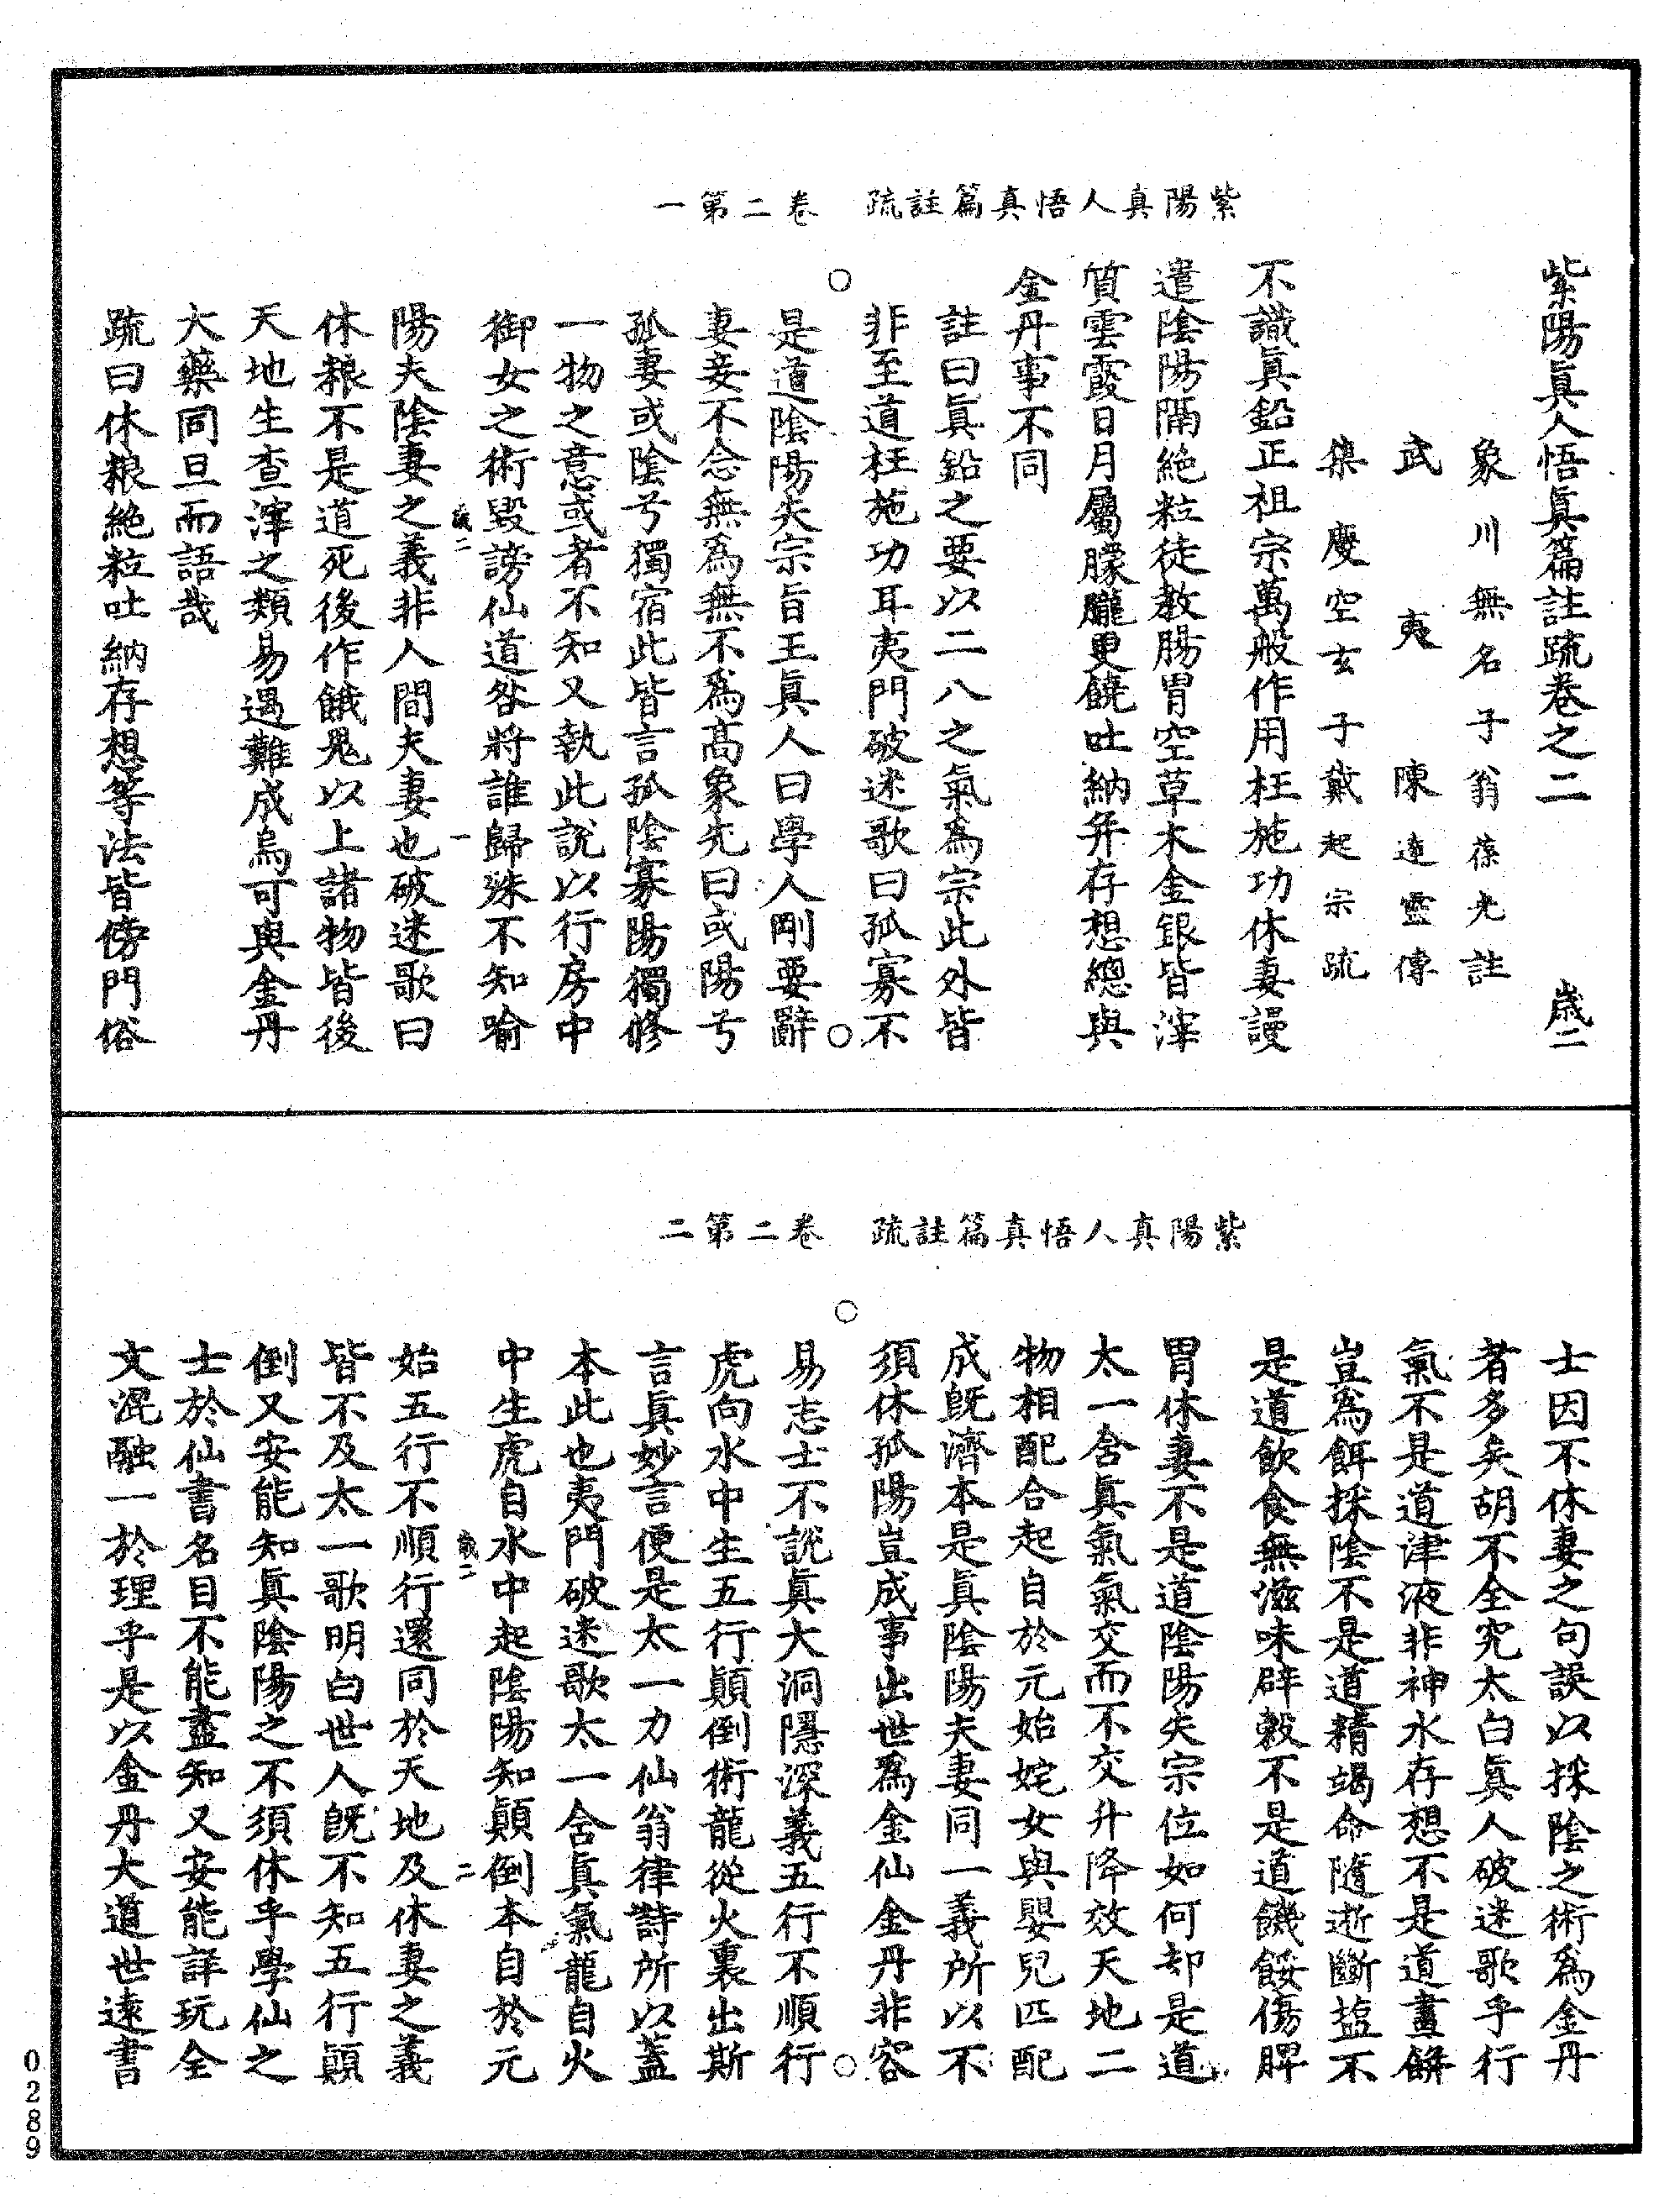 紫陽真人悟真篇註疏　卷二第一
紫陽眞人悟眞篇註疏卷之二　歲二
象川無名子翁葆光註
武夷陳達靈傳
集慶空玄子戴起宗疏
不識眞鉛正祖宗萬般作用枉施功休妻謾
遣陰陽隔絶粒徒教腸胃空草木金銀皆滓
質雲霞日月屬朦朧更饒吐納并存想總與
金丹事不同
註曰眞鉛之要以二八之氣爲宗此外皆
非至道枉施功耳夷門破迷歌曰孤寡不
是道陰陽失宗旨王眞人曰學人剛要辭
妻妾不念無爲無不爲高象先曰或陽兮
孤妻或陰兮獨宿此皆言孤陰寡陽獨修
一物之意或者不知又執此說以行房中
御女之術毀謗仙道咎將誰歸殊不知喻
歲二　一
陽夫陰妻之義非人間夫妻也破迷歌曰
休粮不是道死後作餓鬼以上諸物皆後
天地生查滓之類易遇難成烏可與金丹
大藥同旦而語哉
疏曰休粮絶粒吐納存想等法皆傍門俗
紫陽真人悟真篇註疏　卷二第二
士因不休妻之句誤以採陰之術爲金丹
者多矣胡不全究太白眞人破迷歌乎行
氣不是道津液非神水存想不是道畫餅
豈爲餌採陰不是道精竭命隨逝斷鹽不
是道飲食無滋味辟穀不是道饑餒傷脾
胃休妻不是道陰陽失宗位如何却是道
太一含眞氣氣交而不交升降效天地二
物相配合起自於元始姹女與嬰兒匹配
成旣濟本是眞陰陽夫妻同一義所以不
須休孤陽豈成事出世爲金仙金丹非容
易志士不說眞大洞隱深義五行不順行
虎向水中生五行顛倒術龍從火裏出斯
言眞妙言便是太一力仙翁律詩所以蓋
本此也夷門破迷歌太一含眞氣龍自火
中生虎自水中起陰陽知顛倒本自於元
歲二　二
始五行不順行還同於天地及休妻之義
皆不及太一歌明白世人旣不知五行顛
倒又安能知眞陰陽之不須休乎學仙之
士於仙書名目不能盡知又安能詳玩全
文混融一於理乎是以金丹大道世遠書
0289